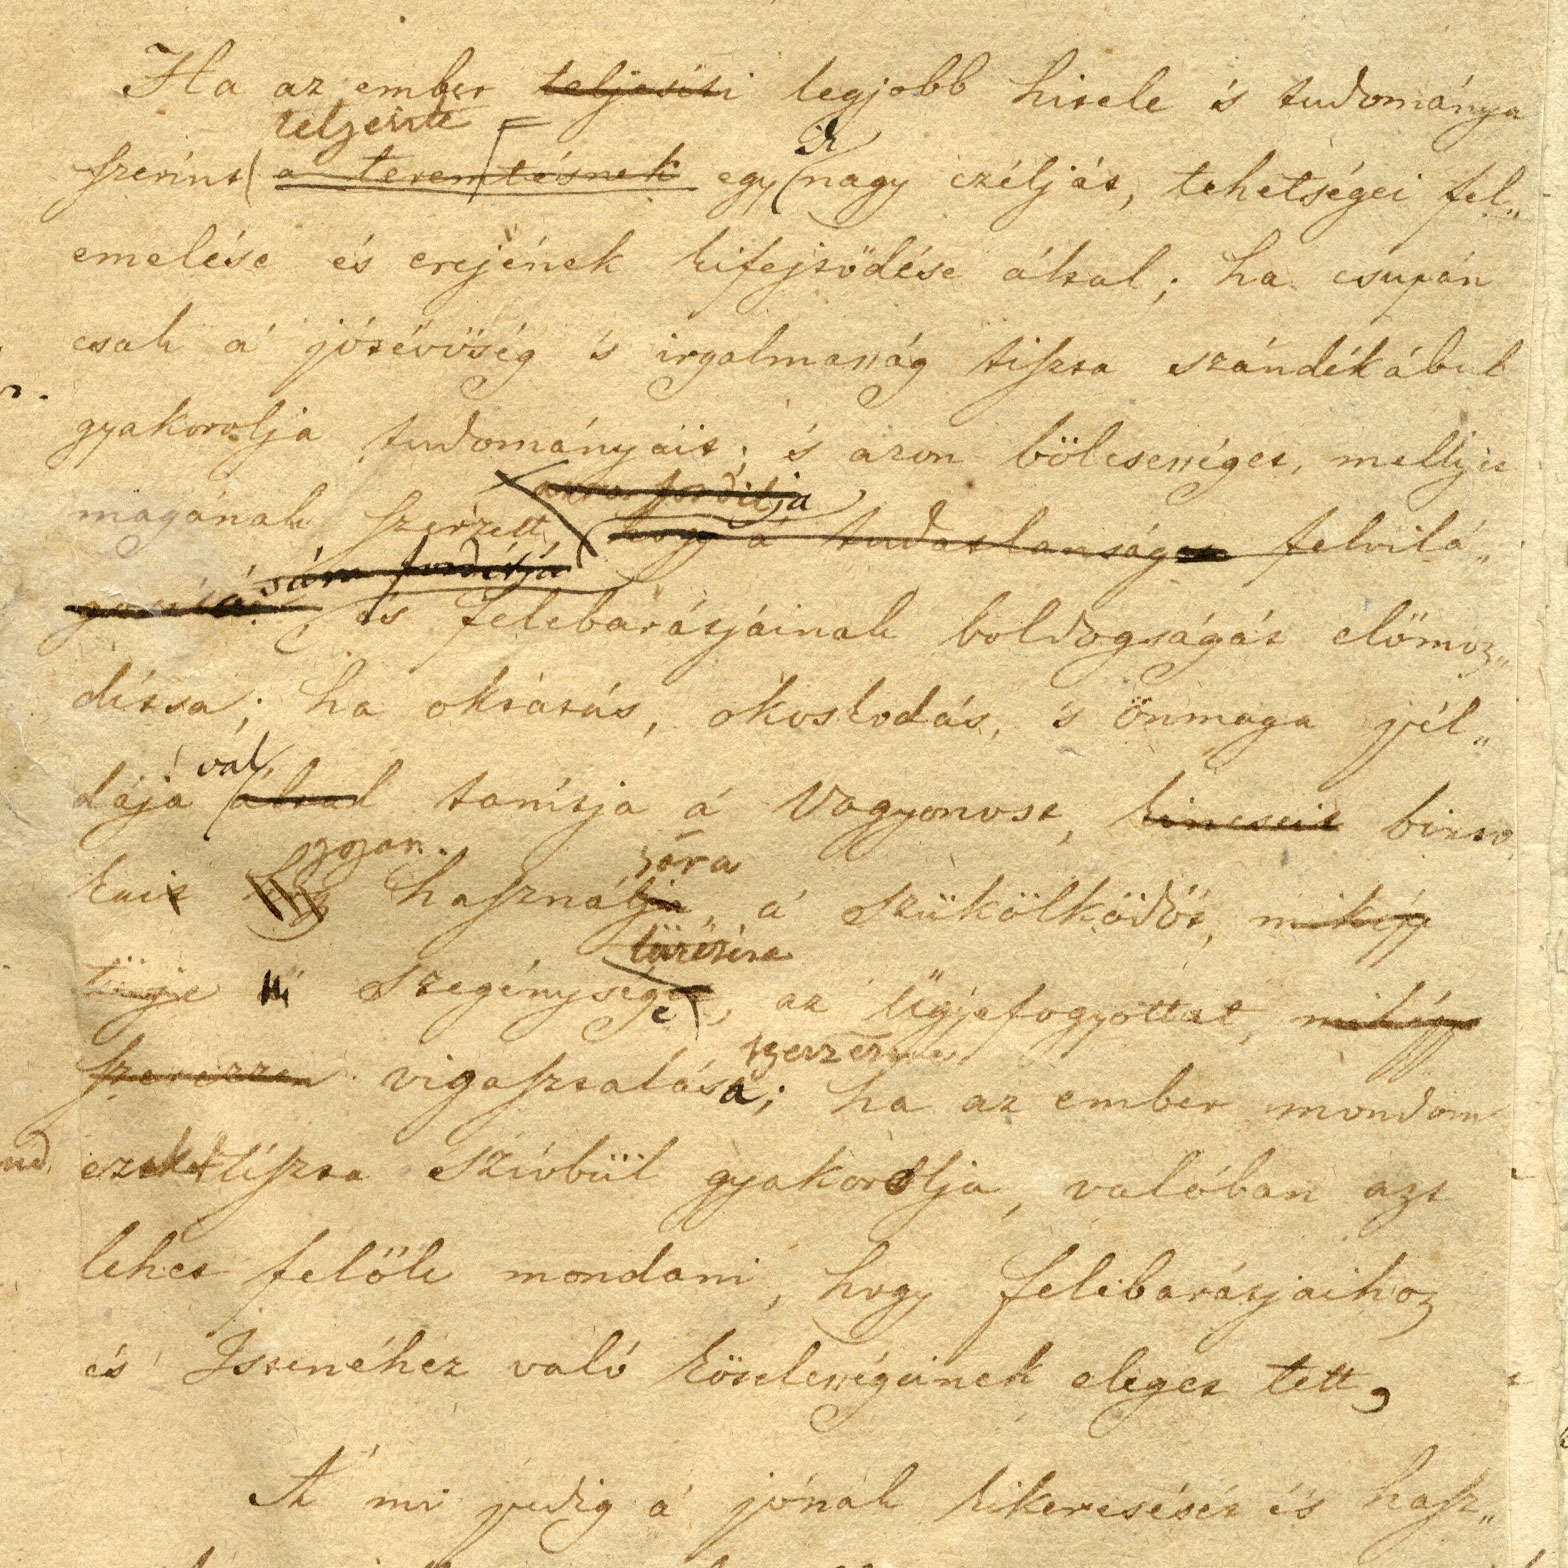 Ha az ember teljesíti legjobb hitele 's tudománya
teljesité
szerint a teremtésnek egy nagy czélját, tehetségei fel„
emelése és erejének kifejtödése által; ha csupán
csak á jótévöség 's irgalmasság tiszta szándékábul
gyakorolja tudományáit; 's azon bölcsességet, mellyet
arra fordítja
magának szerzett, hogy a tudatlanságot felvilá„
fordítja
és felebarátjáinak boldogságát elömoz„
dítsa; ha oktatás, okoskodás, 's önmaga pél„
val
dájá által tanítja á Vagyonost, kincseit birto
gozan.
sára
kait használja, á szükölködöt, mikép
türésére
türje szegénységé, az ügyefogyottat, mikép
szerzésére
szerezzen vigasztalása; ha az ember mondom
ezeket tiszta szivbül gyakorolja, valóban azt
lehet felöle mondani, hogy felebarátjaihoz
és Istenéhez való kötelességeinek eleget tett,
A mi pedig á jónak kikeresését és hasz„